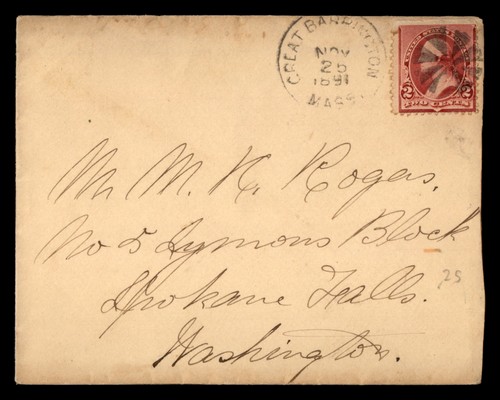 GREAT BARRINGTON
NOV
25
1891
MASS.
2 TWO CENTS 2
Mr. M. K. Rogers,
No 5 Symons Block
Spokane Falls.
Washington.
25